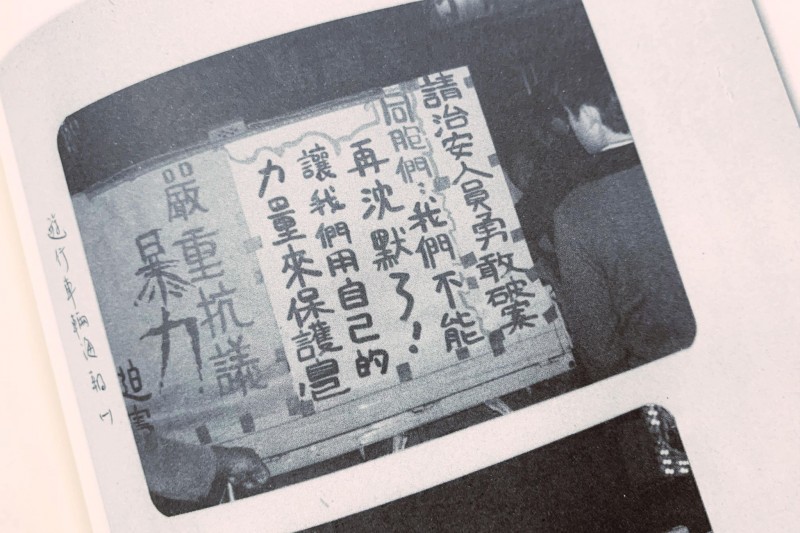 請治安人員勇敢破案
同胞們：我們不能
再沈默了！
讓我們用自己的
力量來保護
嚴重抗議
暴力！
迫害
遊行車輛海報